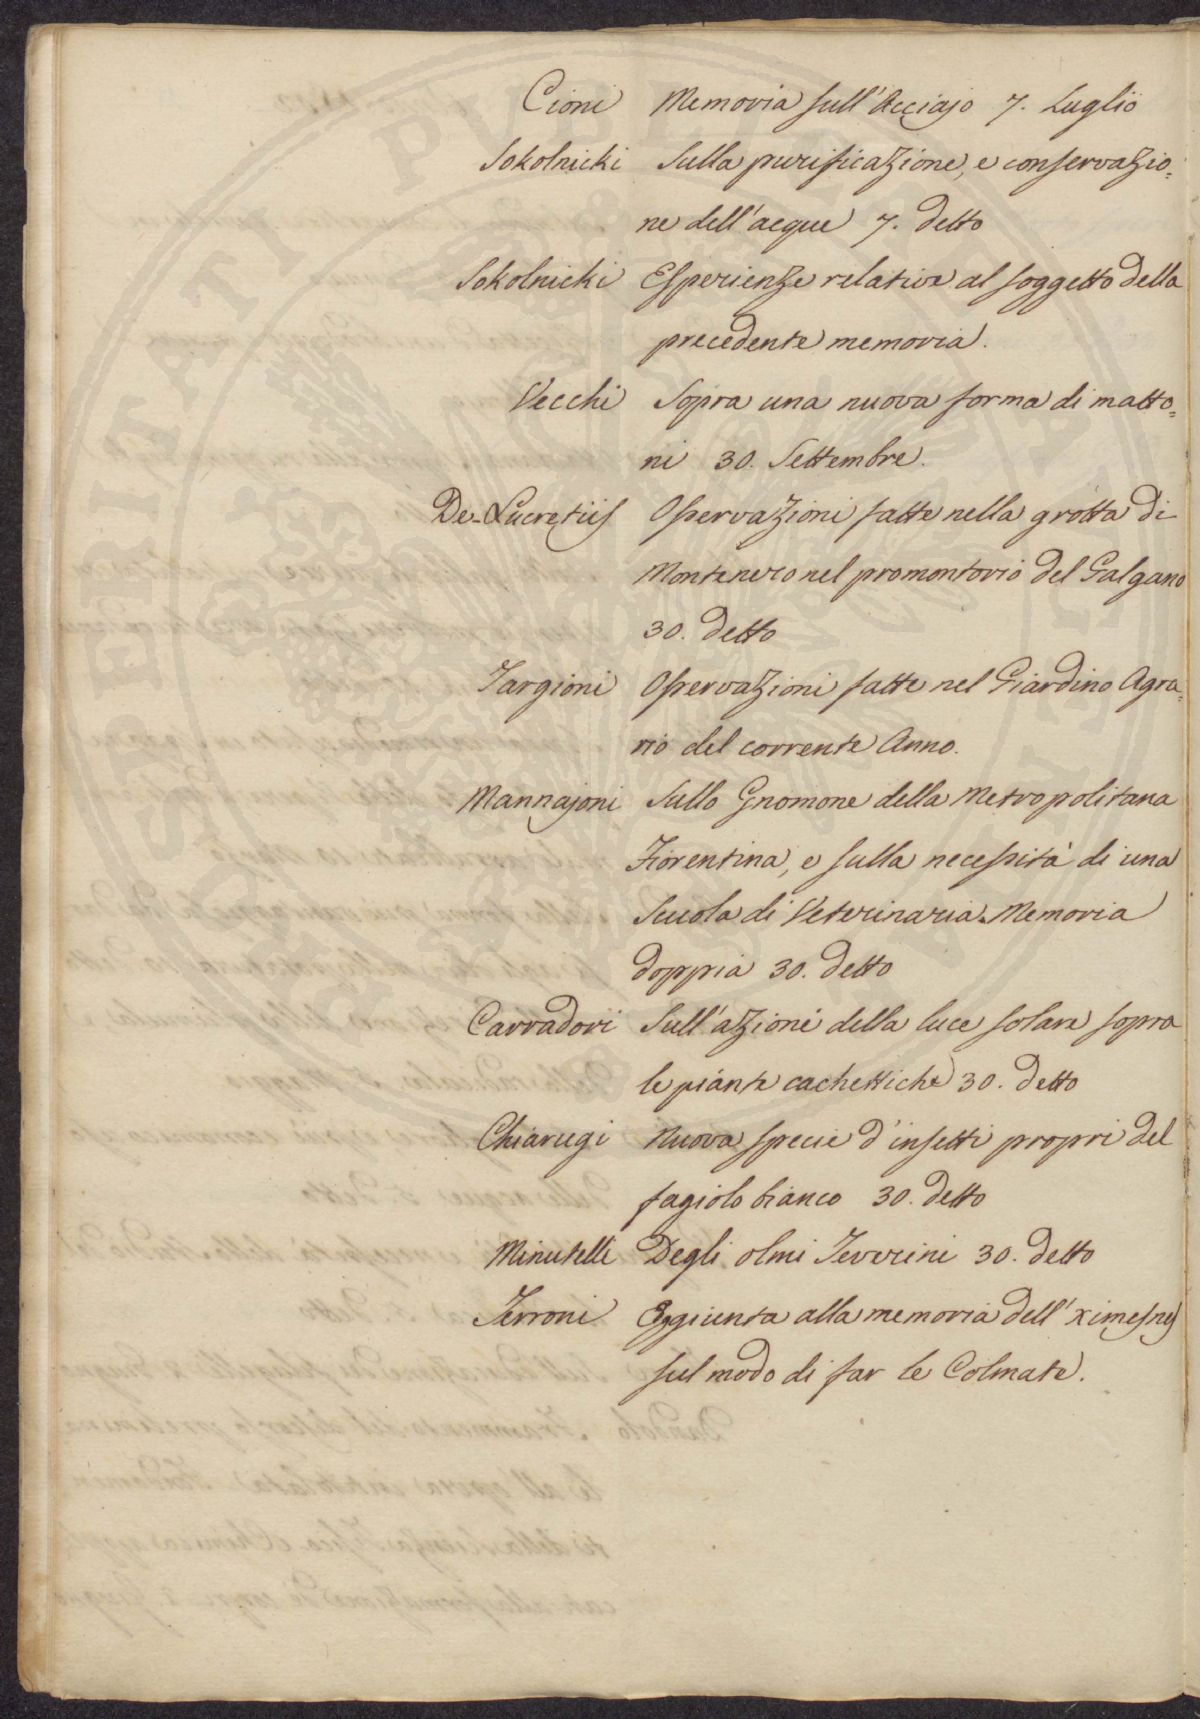 Cioni Memoria sull'Acciajo 7. Luglio
Sokolnicki Sulla purificazione, e conservazio=
ne dell'acque 7. detto
Sokolnicki Esperienze relative al soggetto della
precedente memoria.
Vecchi Sopra una nuova forma di matto=
ni 30. Settembre.
De-Lucretiis Osservazioni fatte nella grotta di
Montenero nel promontorio del Galgano
30. detto
Targioni Osservazioni fatte nel Giardino Agra=
rio del corrente Anno.
Mannajoni Sullo Gnomone della Metropolitana
Fiorentina, e sulla necessità di una
Scuola di Veterinaria. Memoria
doppia 30. detto
Carradori Sull'azione della luce solare sopra
le piante cachettiche 30. detto
Chiarugi Nuova specie d'insetti propri del
fagiolo bianco 30. detto
Minutelli Degli olmi Teverini 30. detto
Ferroni Aggiunta alla memoria dell'Ximesnes
sul modo di far le Colmate.